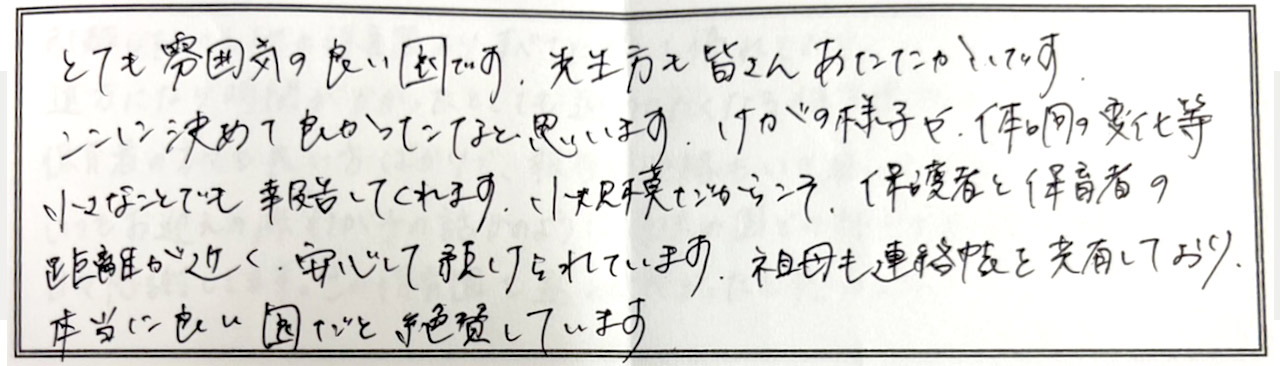 とても雰囲気の良い園です。先生方も皆さんあたたかいです。
ここに決めて良かったなと思います。けがの様子や、体調の変化等
小さなことでも報告してくれます。小規模だからこそ、保護者と保育者の
距離が近く、安心して預けられています。祖母も連絡帳を共有しており、
本当に良い園だと絶賛しています